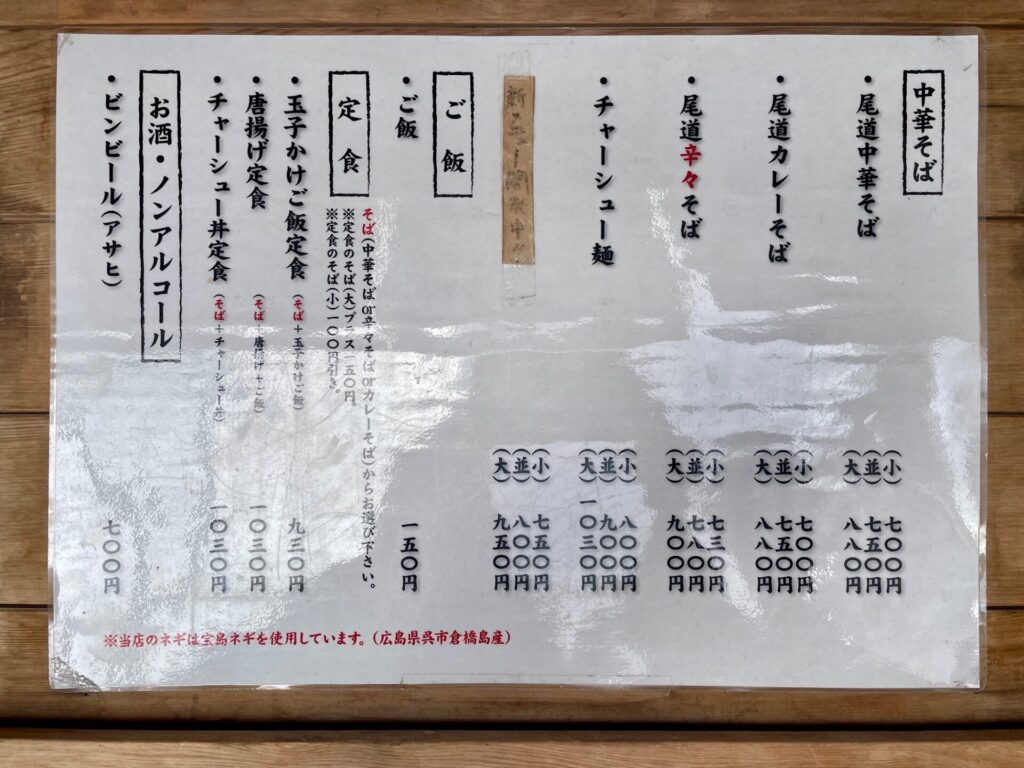 中華そば
・尾道中華そば
(小) 七〇〇円
(並) 七五〇円
(大) 八八〇円
・尾道カレーそば
(小) 七〇〇円
(並) 七五〇円
(大) 八八〇円
・尾道辛々そば
(小) 七三〇円
(並)
(大) 九〇〇円
・チャーシュー麺
(小) 八〇〇円
(並) 九〇〇円
(大) 一〇三〇円
(小) 七五〇円
(並) 八〇〇円
(大) 九五〇円
ご飯
・ご飯 一五〇円
定食
そば(中華そばor辛々そばorカレーそば)からお選び下さい。
※定食のそば(大)プラス一五〇円。
※定食のそば(小)一〇〇円引き。
・玉子かけご飯定食(そば+玉子かけご飯) 九三〇円
・唐揚げ定食(そば+唐揚げ+ご飯) 一〇三〇円
・チャーシュー丼定食(そば+チャーシュー丼) 一〇三〇円
お酒・ノンアルコール
・ビンビール(アサヒ) 七〇〇円
※当店のネギは宝島ネギを使用しています。(広島県呉市倉橋島産)